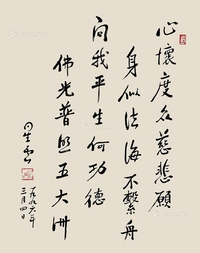 心懷度众慈悲願
身似法海不繫舟
问我平生何功德
佛光普照五大洲
星雲
一九九六年
三月四日